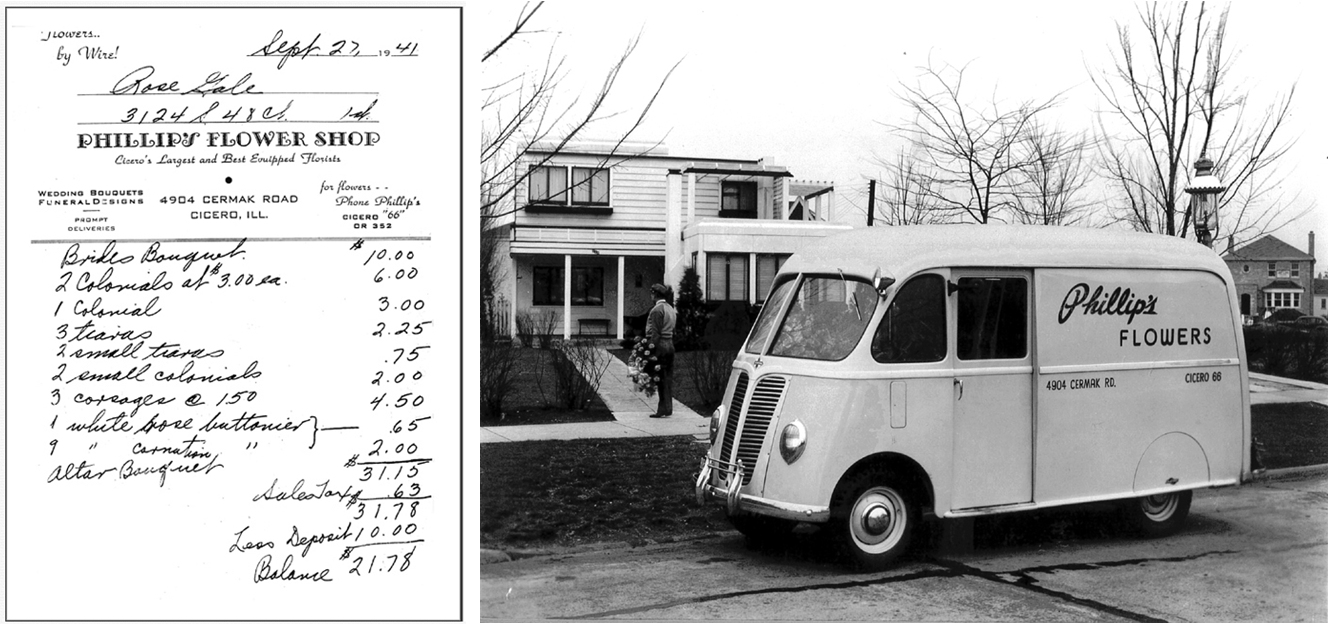 Flowers..
by Wire!
Sept. 27, 1941
Rose Gale
3124 S 48 Ct. 1st.
PHILLIP'S FLOWER SHOP
Cicero's Largest and Best Equipped Florists
WEDDING BOUQUETS
FUNERAL DESIGNS
PROMPT
DELIVERIES
4904 CERMAK ROAD
CICERO, ILL.
for flowers - -
Phone Phillip's
CICERO "66"
OR 352
Brides Bouquet. $10.00
2 Colonials at $3.00 ea. 6.00
1 Colonial 3.00
3 tiaras 2.25
2 small tiaras .75
2 small colonials 2.00
3 corsages @ 1.50 4.50
1 white rose buttonier } — .65
9 " carnation " 2.00
Altar Bouquet
$31.15
Sales Tax .63
$31.78
Less Deposit 10.00
Balance $21.78
Phillip's
FLOWERS
4904 CERMAK RD.
CICERO 66